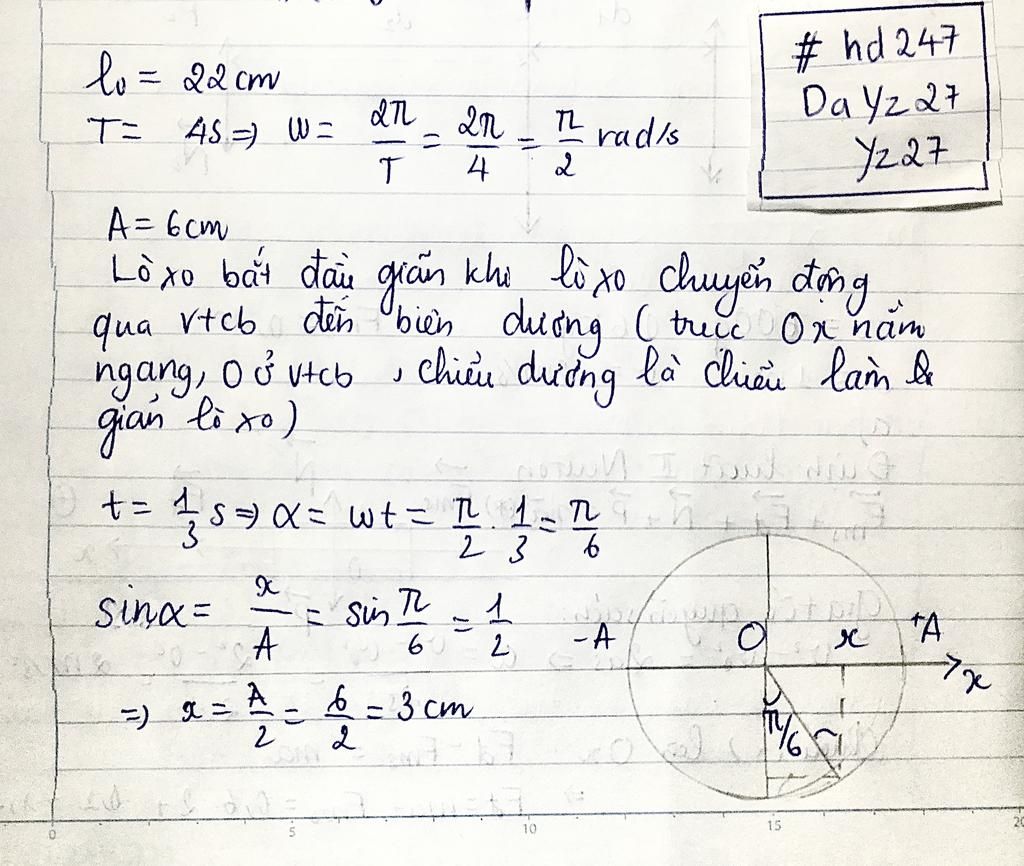 l₀ = 22 cm
T = 4s ⇒ ω = 2π/T = 2π/4 = π/2 rad/s
# hd 247
Da Yz 27
Yz 27
A = 6 cm
Lò xo bắt đầu giãn khi lò xo chuyển động
qua vtcb đến biên dương (trục Ox nằm
ngang, O ở vtcb, chiều dương là chiều làm
giãn lò xo)
t = 1/3 s ⇒ α = ωt = π/2 . 1/3 = π/6
sin α = x/A = sin π/6 = 1/2
⇒ x = A/2 = 6/2 = 3 cm
-A O x +A
x
π/6
0 5 10 15 20